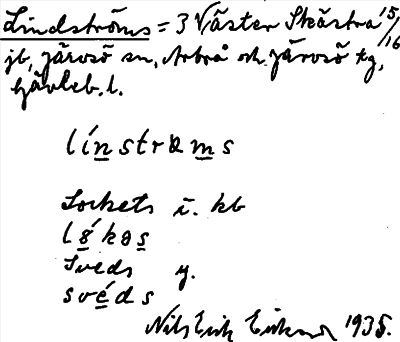 Lindströms = 3 Väster Skästra 15/16
jb, Järvsö sn, Arbrå och Järvsö tg,
Gävleb. l.
línstrɷms
Lockets i. kb
l kɷs
Sveds y.
svéds
Nils Erik Eriksson 1935.